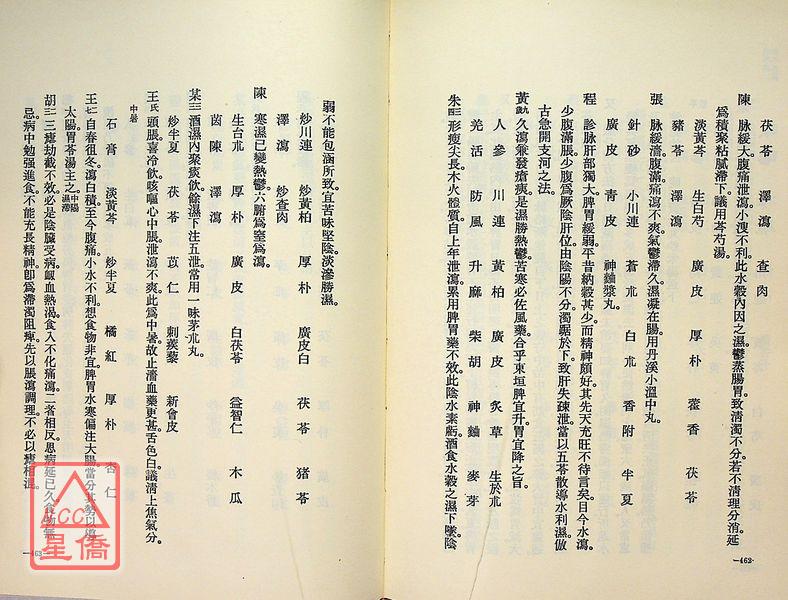 茯苓 澤瀉 查肉
陳 脉緩大腹痛泄瀉小溲不利此水穀內因之濕鬱蒸腸胃致清濁不分若不清理分消延
爲積聚粘膩滯下議用芩芍湯
淡黃芩 生白芍 廣皮 厚朴 藿香 茯苓
豬苓 澤瀉
張 脉緩濇腹滿痛瀉不爽氣鬱滯久濕凝在腸用丹溪小溫中丸
針砂 小川連 蒼朮 白朮 香附 半夏
廣皮 青皮 神麯漿丸
程 診脉肝部獨大脾胃緩弱平昔納穀甚少而精神頗好其先天充旺不待言矣目今水瀉
少腹滿脹少腹爲厥陰肝位由陰陽不分濁踞於下致肝失疎泄當以五苓散導水利濕倣
古急開支河之法
黃九 久瀉兼發瘡痍是濕勝熱鬱苦寒必佐風藥合乎東垣脾宜升胃宜降之旨
人參 川連 黃柏 廣皮 炙草 生於朮
羌活 防風 升麻 柴胡 神麯 麥芽
朱 形瘦尖長木火體質自上年泄瀉累用脾胃藥不效此陰水素虧酒食水穀之濕下墜陰
—462—
弱不能包涵所致宜苦味堅陰淡滲勝濕
炒川連 炒黃柏 厚朴 廣皮白 茯苓 猪苓
澤瀉 炒查肉
陳 寒濕已變熱鬱六腑爲窒爲瀉
生台朮 厚朴 廣皮 白茯苓 益智仁 木瓜
茵陳 澤瀉
某 酒濕內聚痰飲餘濕下注五泄常用一味茅朮丸
炒半夏 茯苓 苡仁 刺蒺藜 新會皮
王氏 頭脹喜冷飲咳嘔心中脹泄瀉不爽此爲中暑故止濇血藥更甚舌色白議清上焦氣分
中暑
石膏 淡黃芩 炒半夏 橘紅 厚朴 杏仁
王 自春徂冬瀉白積至今腹痛小水不利想食物非宜脾胃水寒偏注大腸當分其勢以導
太陽胃苓湯主之 中陽濕滯
胡 瘧劫截不效必是陰臟受病衄血熱渴食入不化痛瀉二者相反恩病延已久食物無
忌病中勉强進食不能充長精神卽爲滯濁阻痺先以脹瀉調理不必以瘧相混
—463—
ACC
星僑